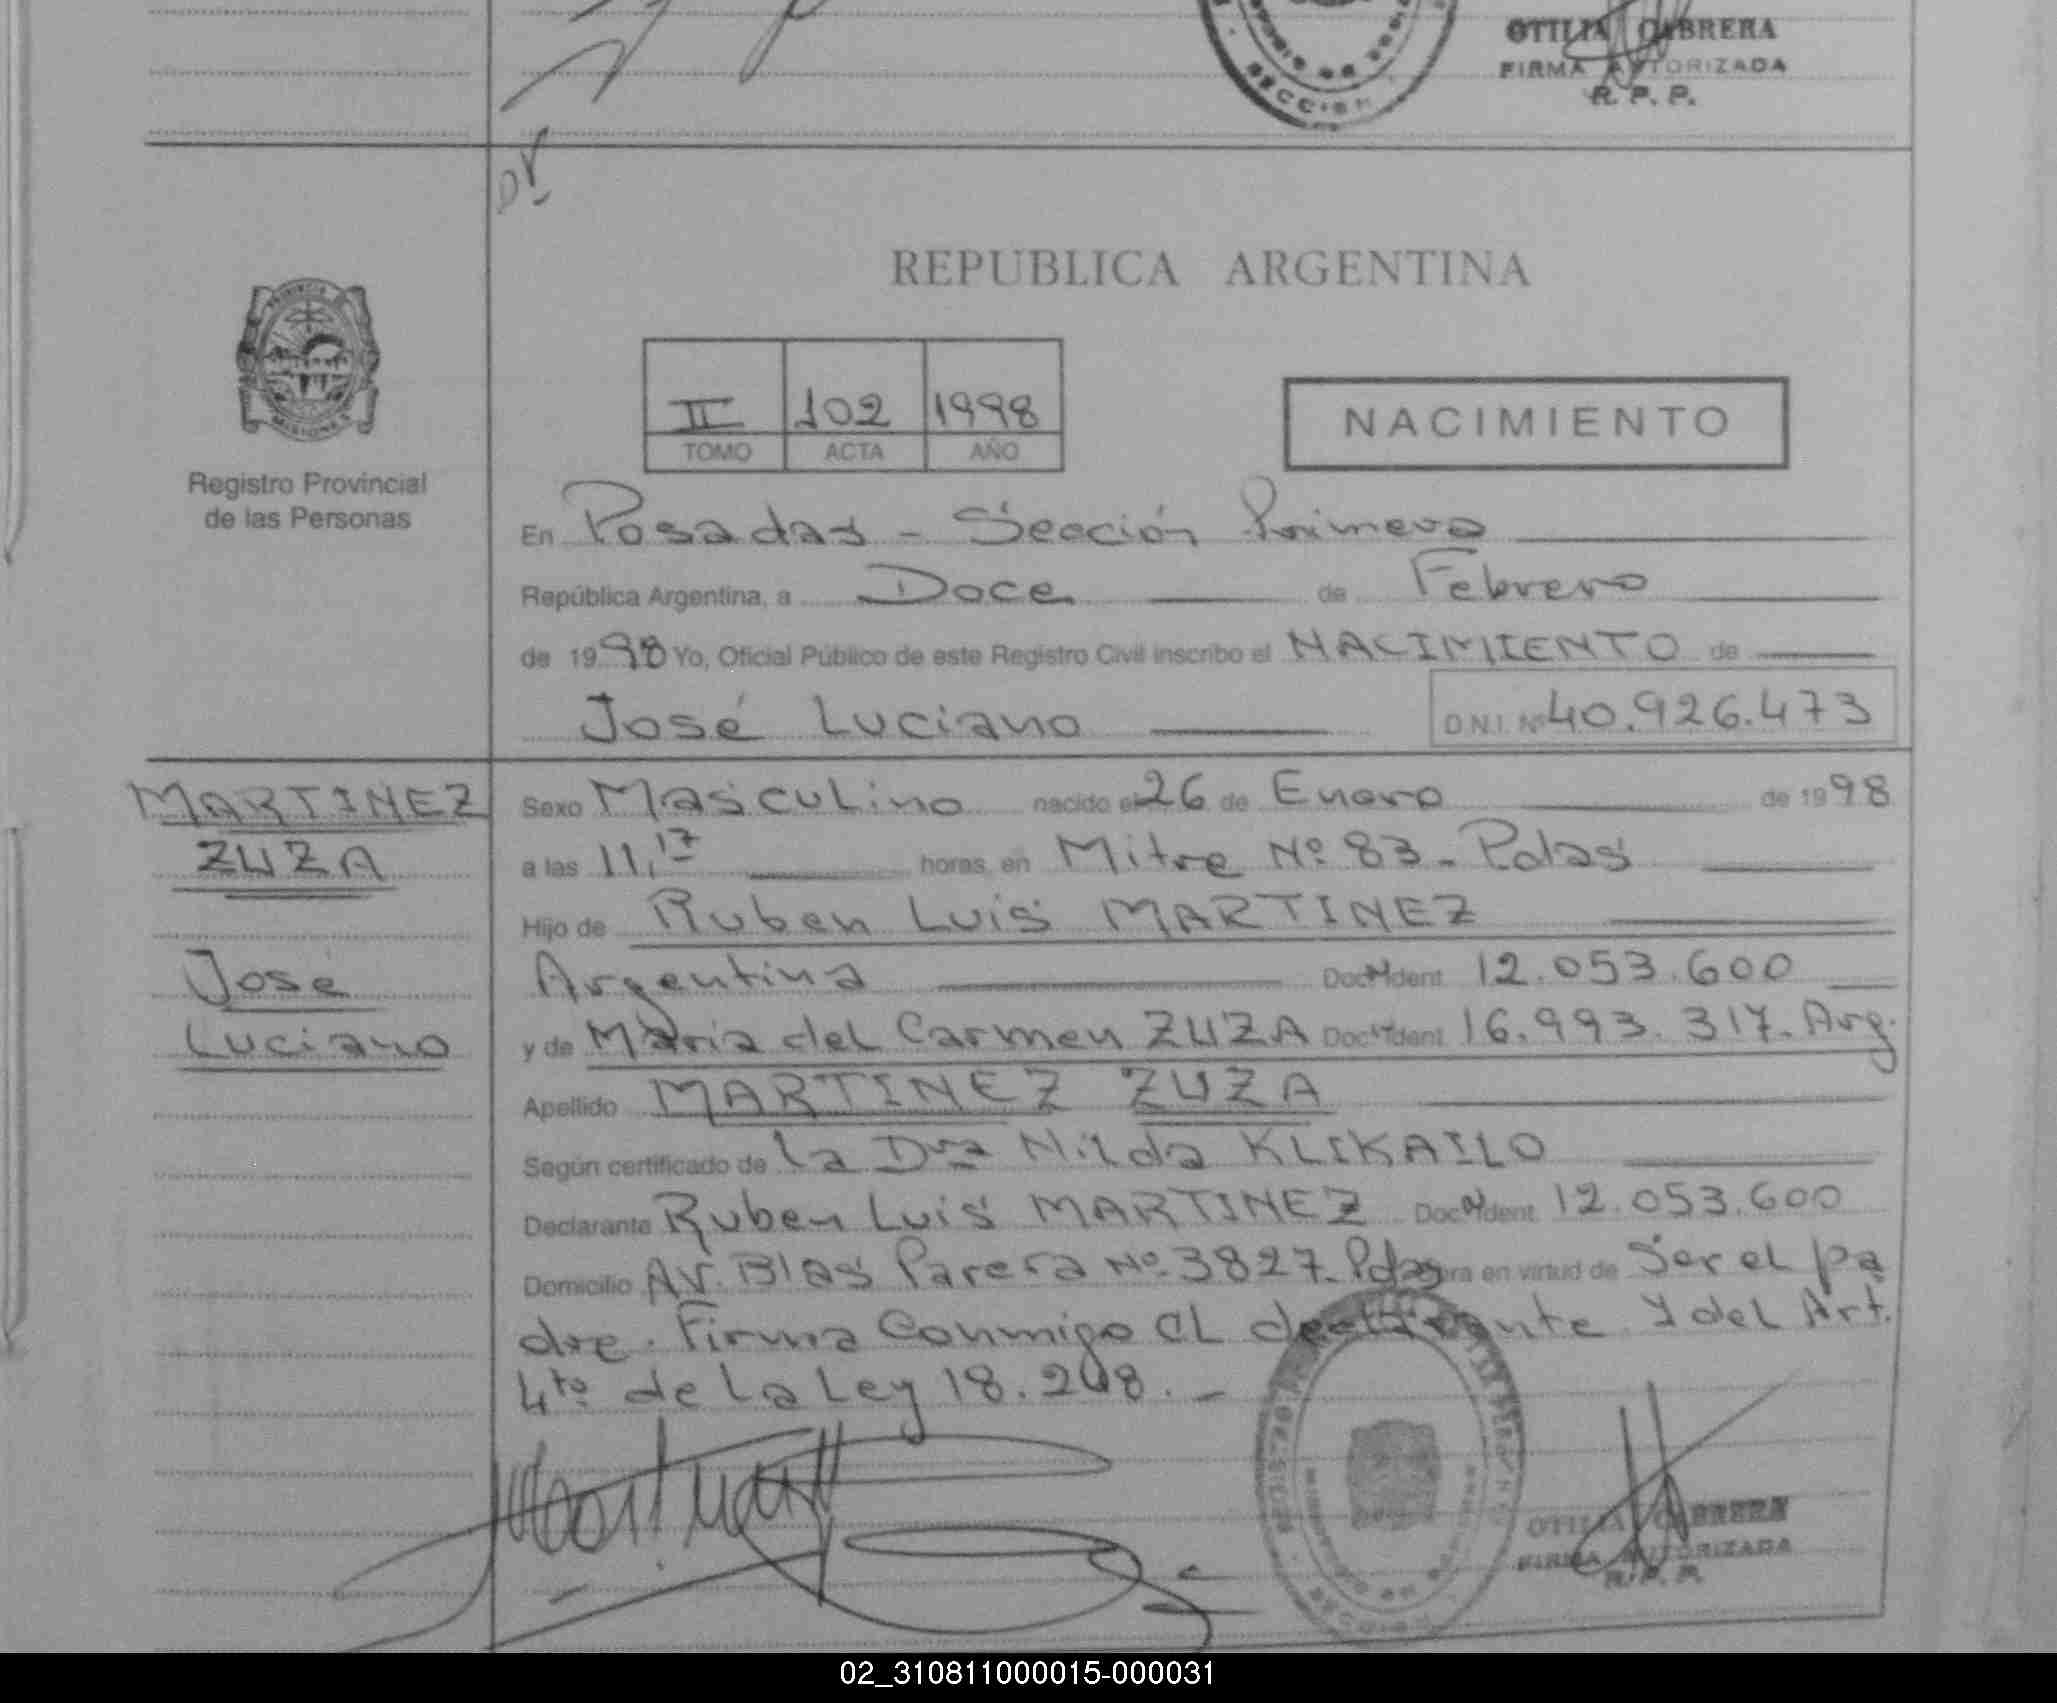 OTILIA CABRERA
FIRMA AUTORIZADA
R. P. P.
SECCION
REPUBLICA ARGENTINA
PROVINCIA
MISIONES
Registro Provincial
de las Personas
II 102 1998
TOMO ACTA AÑO
NACIMIENTO
En Posadas - Sección Primera
República Argentina, a Doce de Febrero
de 1998 Yo, Oficial Público de este Registro Civil inscribo el NACIMIENTO de
José Luciano D.N.I. Nº 40.926.473
MARTINEZ
ZUZA
José
Luciano
Sexo Masculino nacido el 26 de Enero de 1998
a las 11,17 horas, en Mitre Nº 83 - Pdas
Hijo de Ruben Luis MARTINEZ
Argentina Doc. Ident. 12.053.600
y de Maria del Carmen ZUZA Doc. Ident. 16.993.317. Arg.
Apellido MARTINEZ ZUZA
Según certificado de la Dra Nilda KLIKAILO
Declarante Ruben Luis MARTINEZ Doc. Ident. 12.053.600
Domicilio AV. Blas Parera Nº 3827. Pdas obra en virtud de Ser el pa
dre. Firma Conmigo el declarante y del Art.
4to de la Ley 18.248. -
SECCION
OTILIA CABRERA
FIRMA AUTORIZADA
R. P. P.
02_310811000015-000031